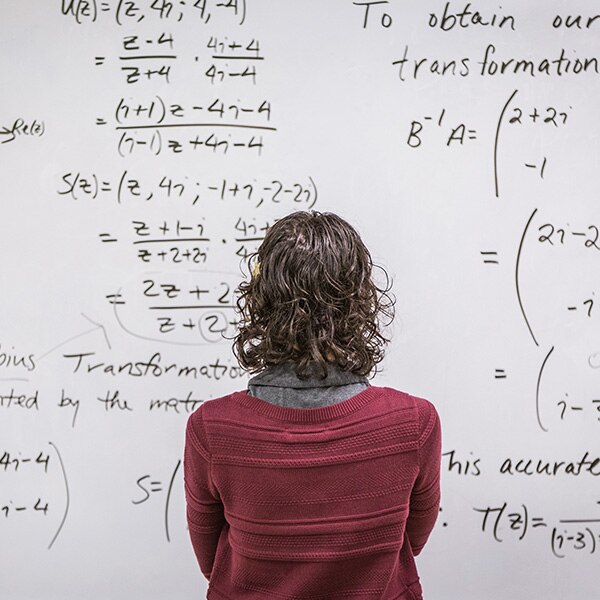 U(z) = (z, 4i ; 4, -4)
= z-4/z+4 · 4i+4/4i-4
= (i+1)z-4i-4/(i-1)z+4i-4
→Re(z)
S(z) = (z, 4i ; -1+i, -2-2i)
= z+1-i/z+2+2i · 4i+
= 2z+2/z+2
bius Transformatio
nted by the matr
4i-4
i-4
S = (
To obtain our
transformation
B⁻¹A = (2+2i
-1
= (2i-2
-i
= (
i-3
his accurate
: T(z) =
(i-3)